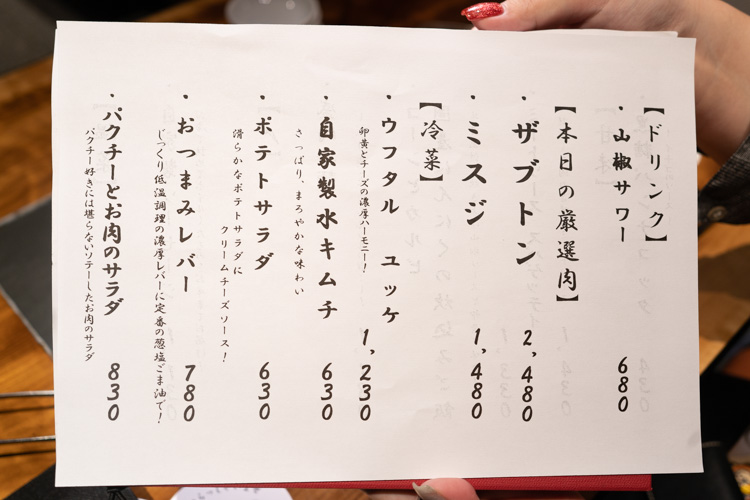 【ドリンク】
・山椒サワー 680
【本日の厳選肉】
・ザブトン 2,480
・ミスジ 1,480
【冷菜】
・ウフタル ユッケ 1,230
卵黄とチーズの濃厚ハーモニー!
・自家製水キムチ 630
さっぱり、まろやかな味わい
・ポテトサラダ 630
滑らかなポテトサラダに
クリームチーズソース!
・おつまみレバー 780
じっくり低温調理の濃厚レバーに定番の葱塩ごま油で!
・パクチーとお肉のサラダ 830
パクチー好きには堪らないソテーしたお肉のサラダ